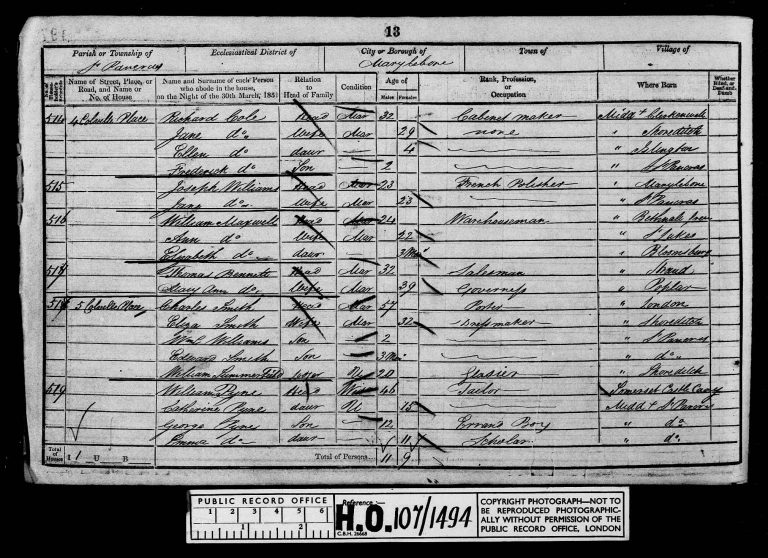 13
Parish or Township of Ecclesiastical District of City or Borough of Town of Village of
St Pancras Marylebone
Name of Street, Place, or Road, and Name or No. of House Name and Surname of each Person who abode in the house, on the Night of the 30th March, 1851 Relation to Head of Family Condition Age of Males Females Rank, Profession, or Occupation Where Born Whether Blind, or Deaf-and-Dumb
514 4 Place Richard Cole Head Mar 32 Cabinet maker Midd x Clerkenwell
Jane do Wife Mar 29 none " Shoreditch
Ellen do daur 4 " Islington
Frederick do Son 2 " St Pancras
515 Joseph Williams Head Mar 23 French Polisher " Marylebone
Jane do Wife Mar 23 " St Pancras
516 William Maxwell Head Mar 24 Warehouseman " Bethnal Green
Ann do Wife Mar 22 " St Lukes
Elizabeth do daur 3 Mo " Bloomsbury
517 Thomas Bennett Head Mar 32 Salesman " Strand
Mary Ann do Wife Mar 39 Governess " Poplar
518 5 Place Charles Smith Head Mar 57 Porter " London
Eliza Smith Wife Mar 32 Dressmaker " Shoreditch
Wm Williams Son 2 " St Pancras
Edward Smith Son 3 Mo " do
William U 20 Glasier " Shoreditch
519 William Pyne Head 46 Tailor Somerset Castle Cary
Catherine Pyne daur U 15 Midd x St Pancras
George Pyne Son 12 Errand Boy " do
Emma do daur 11 Scholar " do
Total of Houses I 1 U B Total of Persons 11 9
PUBLIC RECORD OFFICE
1 2 3 4 5 6
1 2
Reference:-
H.O. 107/1494
C.B.H. 26668
COPYRIGHT PHOTOGRAPH—NOT TO
BE REPRODUCED PHOTOGRAPHIC-
ALLY WITHOUT PERMISSION OF THE
PUBLIC RECORD OFFICE, LONDON